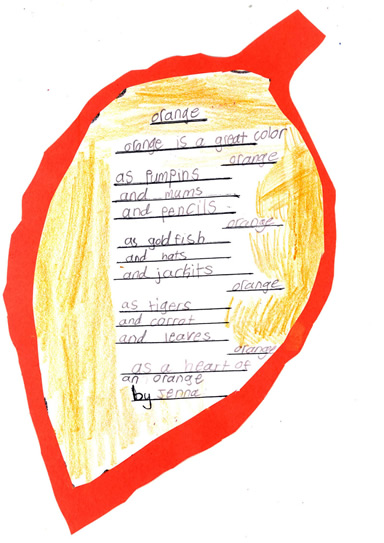 orange
orange is a great color
orange
as Pumpins
and mums
and pencils
orange
as goldfish
and hats
and jackits
orange
as tigers
and carrot
and leaves
orange
as a heart of
an orange
by Jenna